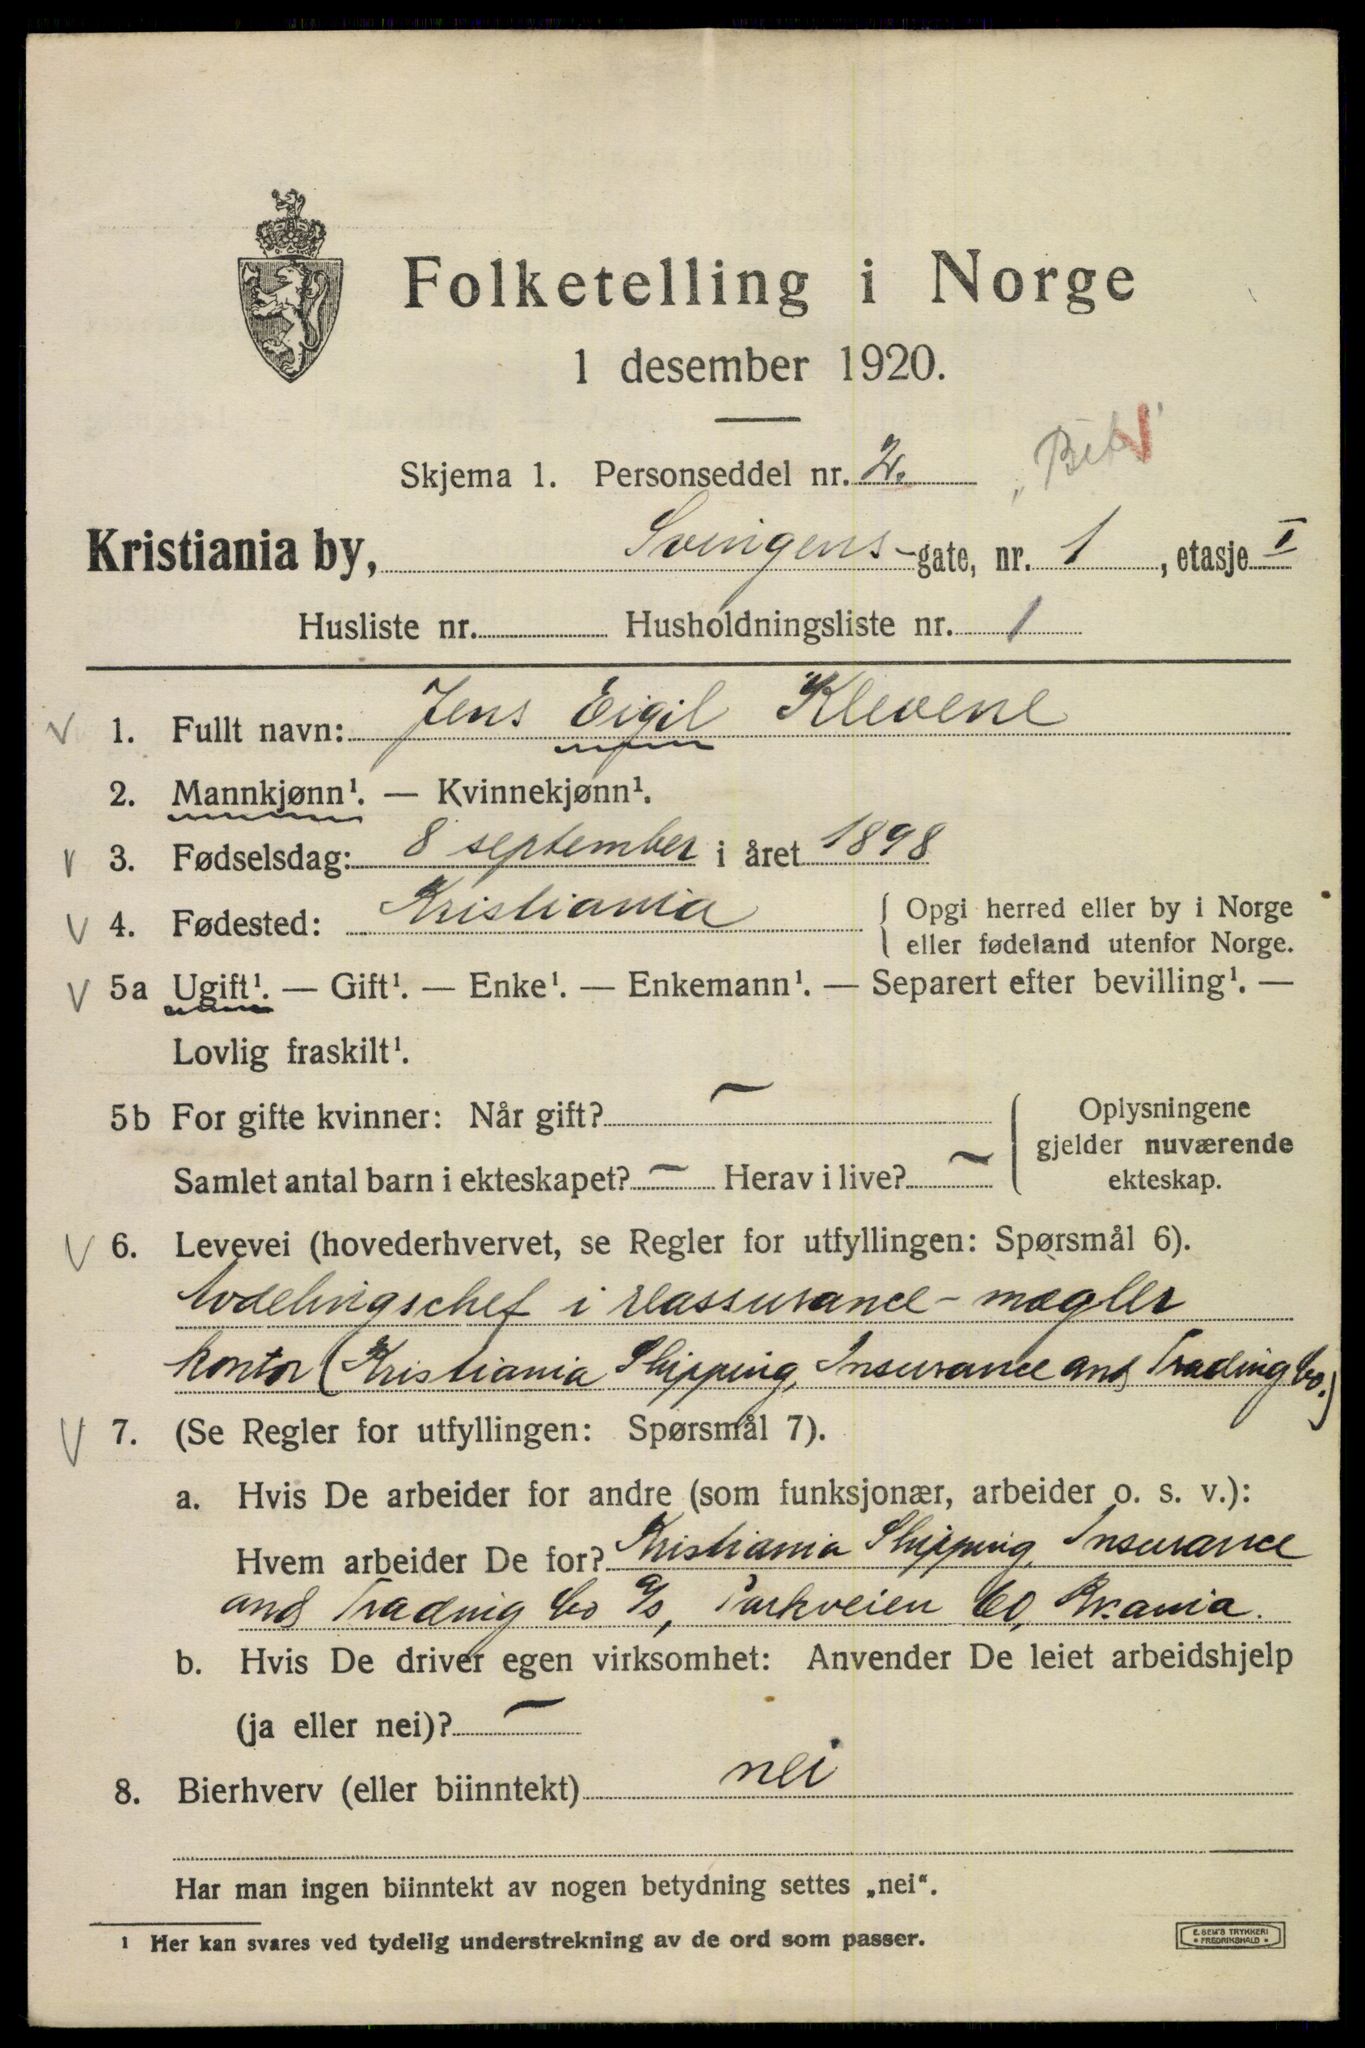 Folketelling i Norge
1 desember 1920.
Skjema 1. Personseddel nr. 2.
Kristiania by, Svingens-gate, nr. 1, etasje I
Husliste nr. Husholdningsliste nr. 1
1. Fullt navn: Jens Eigil Klevene
2. Mannkjønn¹. — Kvinnekjønn¹.
3. Fødselsdag: 8 september i året 1898
4. Fødested: Kristiania { Opgi herred eller by i Norge
eller fødeland utenfor Norge.
5a Ugift¹. — Gift¹. — Enke¹. — Enkemann¹. — Separert efter bevilling¹. —
Lovlig fraskilt¹.
5b For gifte kvinner: Når gift? —
Samlet antal barn i ekteskapet? — Herav i live? —
Oplysningene
gjelder nuværende
ekteskap.
6. Levevei (hovederhvervet, se Regler for utfyllingen: Spørsmål 6).
Avdelingschef i reassurance-mægler
kontor (Kristiania Shipping, Insurance and Trading Co.)
7. (Se Regler for utfyllingen: Spørsmål 7).
a. Hvis De arbeider for andre (som funksjonær, arbeider o. s. v.):
Hvem arbeider De for? Kristiania Shipping, Insurance
and Trading Co a/s, Parkveien 60, Kr.ania.
b. Hvis De driver egen virksomhet: Anvender De leiet arbeidshjelp
(ja eller nei)? —
8. Bierhverv (eller biinntekt) nei
Har man ingen biinntekt av nogen betydning settes „nei“.
¹ Her kan svares ved tydelig understrekning av de ord som passer.
E. SEM'S TRYKKERI
FREDRIKSHALD